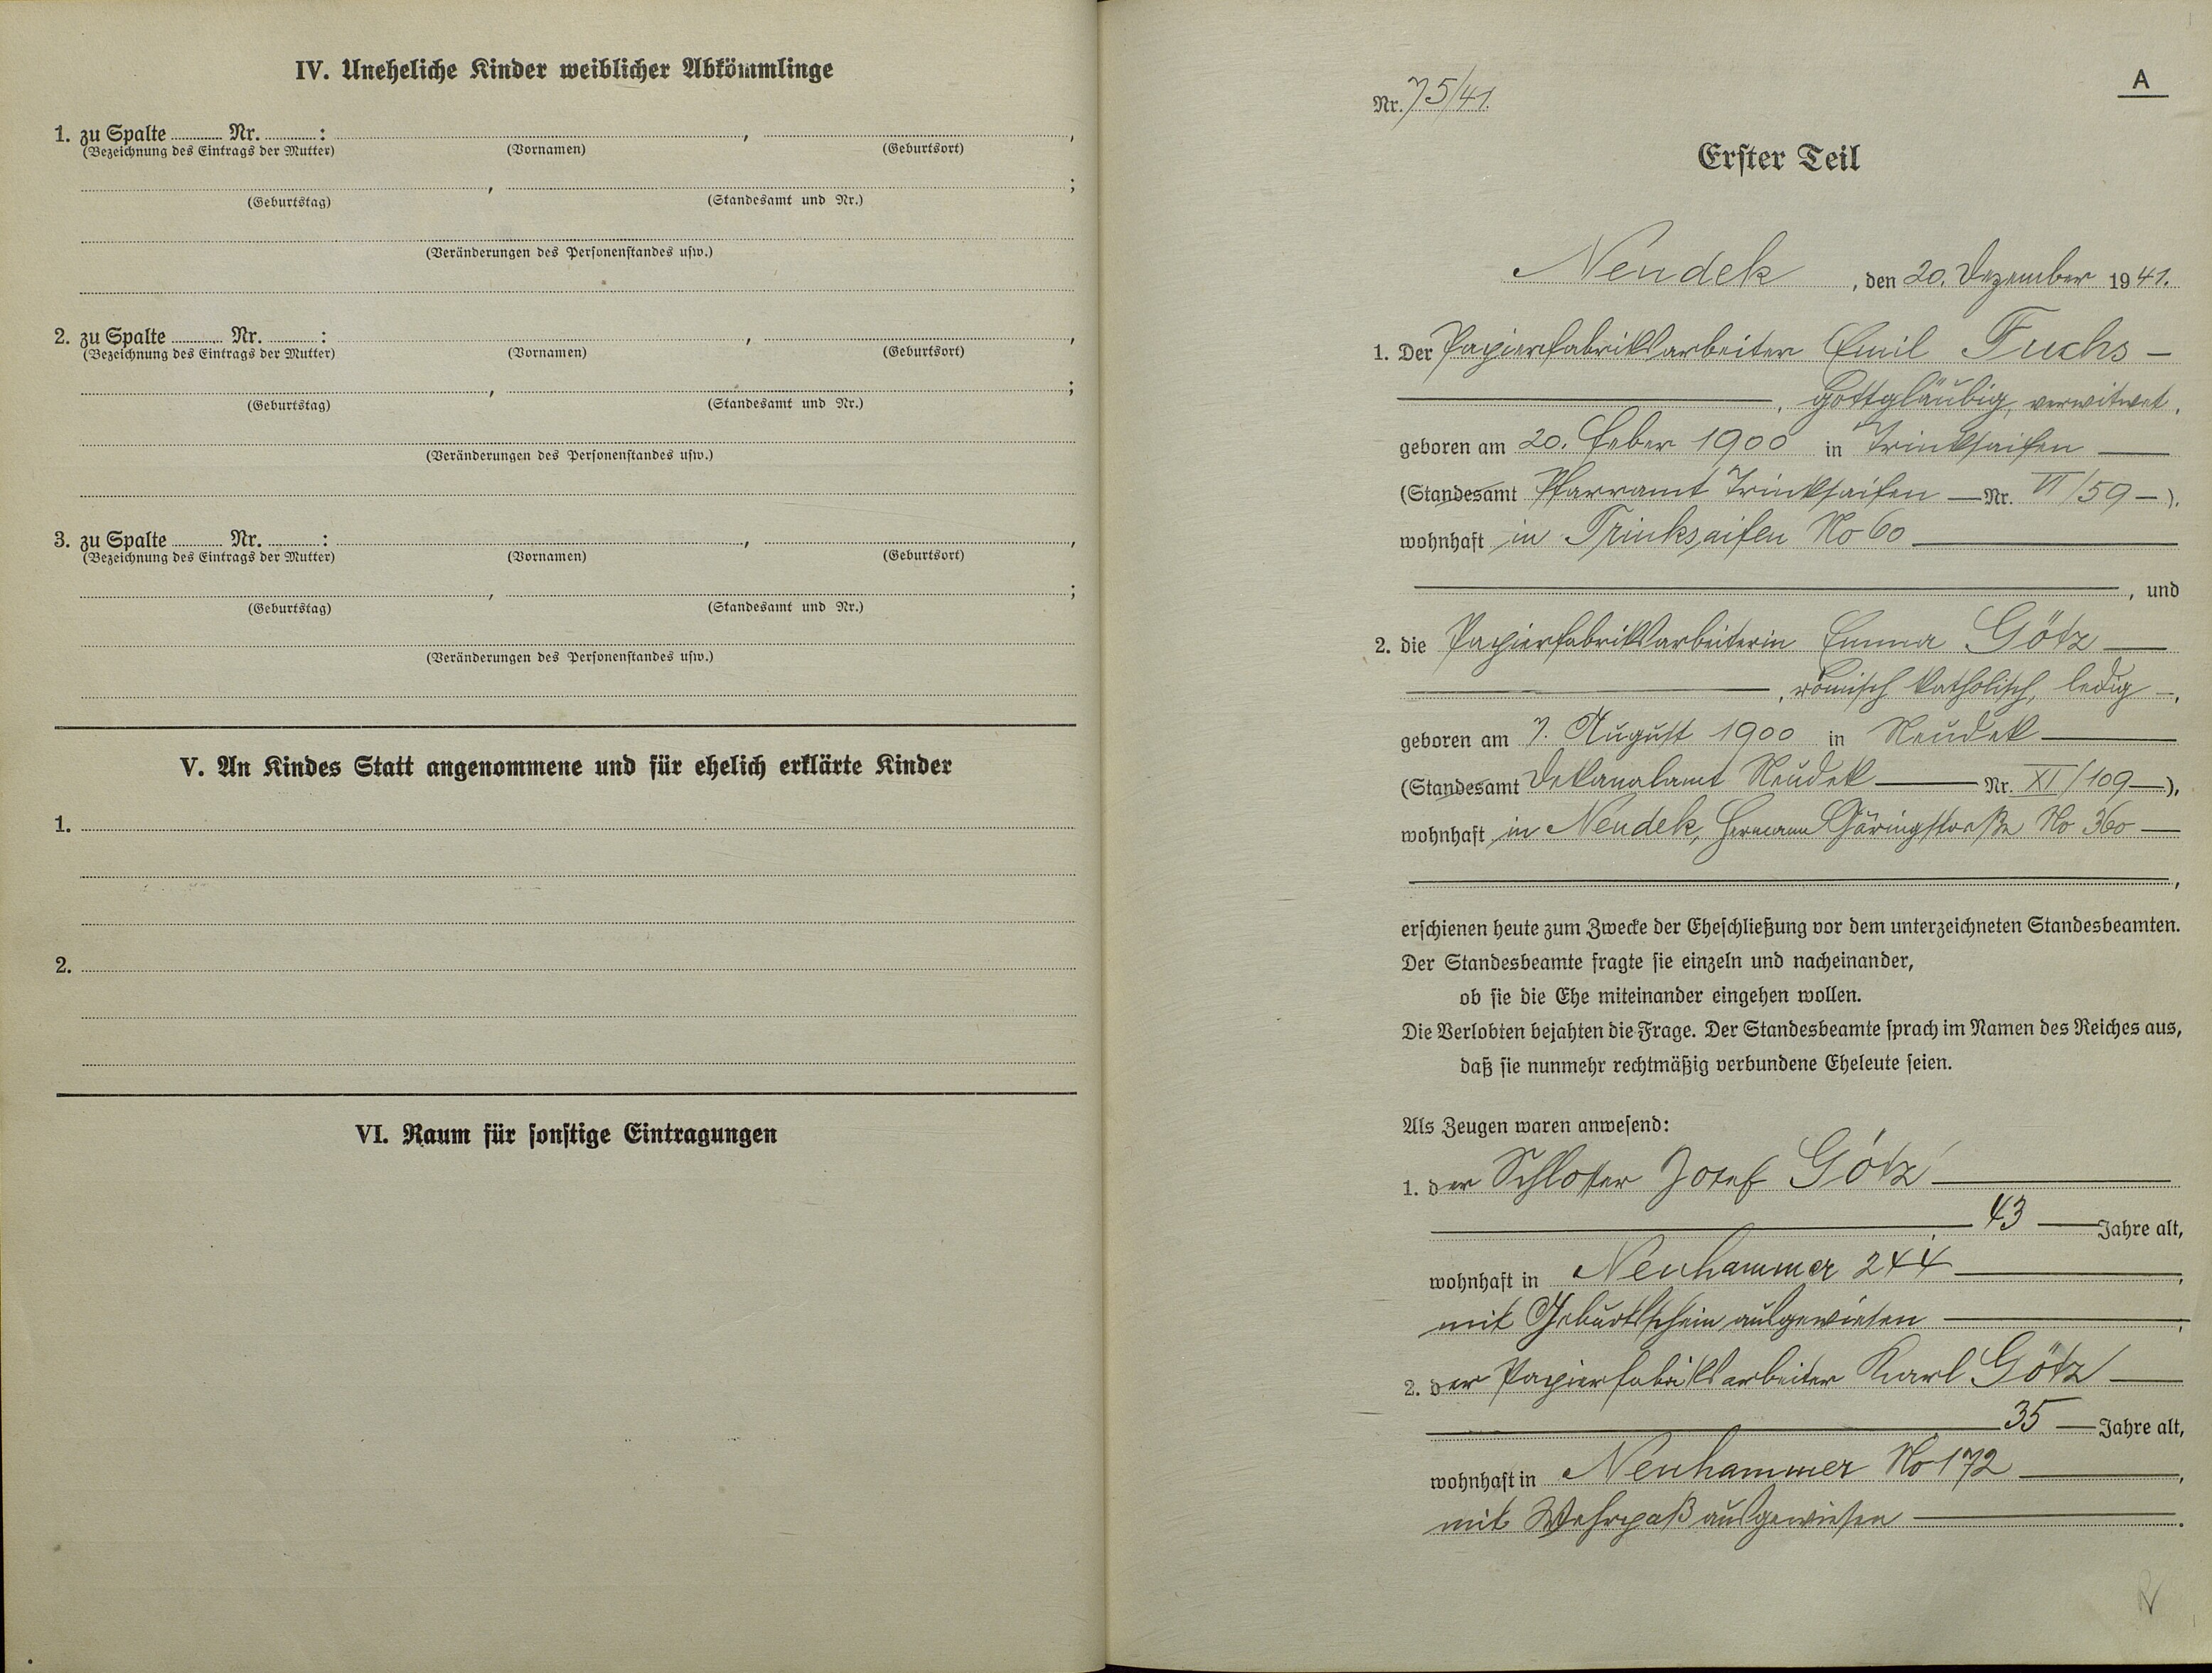 IV. Uneheliche Kinder weiblicher Abkömmlinge
1. zu Spalte ........ Nr. ........ : ........ , ........ ,
(Bezeichnung des Eintrags der Mutter) (Vornamen) (Geburtsort)
........ , ........ ;
(Geburtstag) (Standesamt und Nr.)
(Veränderungen des Personenstandes usw.)
2. zu Spalte ........ Nr. ........ : ........ , ........ ,
(Bezeichnung des Eintrags der Mutter) (Vornamen) (Geburtsort)
........ , ........ ;
(Geburtstag) (Standesamt und Nr.)
(Veränderungen des Personenstandes usw.)
3. zu Spalte ........ Nr. ........ : ........ , ........ ,
(Bezeichnung des Eintrags der Mutter) (Vornamen) (Geburtsort)
........ , ........ ;
(Geburtstag) (Standesamt und Nr.)
(Veränderungen des Personenstandes usw.)
V. An Kindes Statt angenommene und für ehelich erklärte Kinder
1.
2.
VI. Raum für sonstige Eintragungen
A
Nr. 75/41.
Erster Teil
Neudek, den 20. Dezember 1941.
1. Der Papierfabriksarbeiter Emil Fuchs —
—, gottgläubig, verwitwet,
geboren am 20. Feber 1900 in Trinksaifen —
(Standesamt Pfarramt Trinksaifen — Nr. VI/59 —),
wohnhaft in Trinksaifen No 60 —
—, und
2. die Papierfabriksarbeiterin Emma Götz —
—, römisch katholisch, ledig —,
geboren am 7. August 1900 in Neudek —
(Standesamt Dekanalamt Neudek — Nr. XI/109 —),
wohnhaft in Neudek, Hermann Göringstraße No 360 —
—,
erschienen heute zum Zwecke der Eheschließung vor dem unterzeichneten Standesbeamten.
Der Standesbeamte fragte sie einzeln und nacheinander,
ob sie die Ehe miteinander eingehen wollen.
Die Verlobten bejahten die Frage. Der Standesbeamte sprach im Namen des Reiches aus,
daß sie nunmehr rechtmäßig verbundene Eheleute seien.
Als Zeugen waren anwesend:
1. der Schlosser Josef Götz —
— 43 — Jahre alt,
wohnhaft in Neuhammer 244 —,
mit Geburtsschein ausgewiesen —;
2. der Papierfabriksarbeiter Karl Götz —
— 35 — Jahre alt,
wohnhaft in Neuhammer No 172 —,
mit Wehrpaß ausgewiesen —.